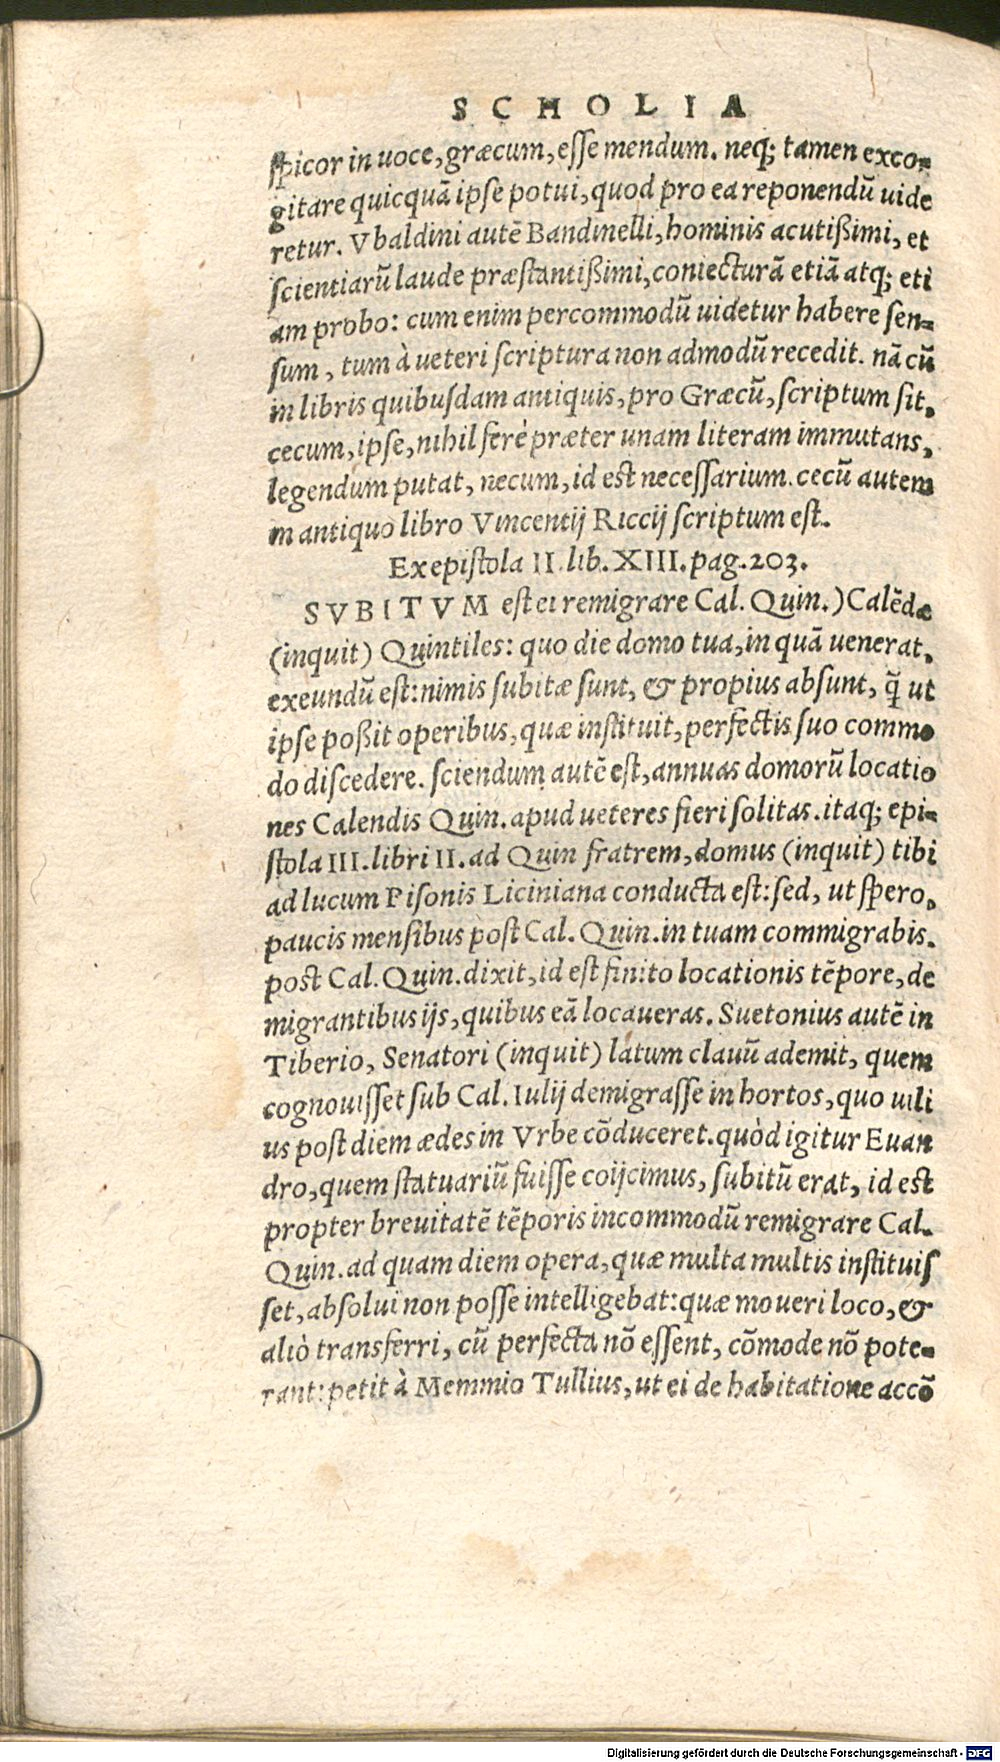 SCHOLIA
ſpicor in uoce, græcum, eſſe mendum. neq; tamen exco-
gitare quicquã ipſe potui, quod pro ea reponendũ uide
retur. Vbaldini autē Bandinelli, hominis acutißimi, et
ſcientiarũ laude præſtantißimi, coniecturã etiã atq; eti
am probo: cum enim percommodũ uidetur habere ſen-
ſum, tum à ueteri ſcriptura non admodũ recedit. nã cũ
in libris quibuſdam antiquis, pro Græcũ, ſcriptum ſit,
cecum, ipſe, nihil ferè præter unam literam immutans,
legendum putat, necum, id est neceſſarium. cecũ autem
in antiquo libro Vincentij Riccij ſcriptum eſt.
Ex epiſtola II. lib. XIII. pag. 203.
SVBITVM eſt ei remigrare Cal. Quin.) Calēdæ
(inquit) Quintiles: quo die domo tua, in quã uenerat,
exeundũ eſt: nimis ſubitæ ſunt, & propius abſunt, q̃ ut
ipſe poßit operibus, quæ inſtituit, perfectis ſuo commo
do diſcedere. ſciendum autē eſt, annuas domorũ locatio
nes Calendis Quin. apud ueteres fieri ſolitas. itaq; epi-
ſtola III. libri II. ad Quin fratrem, domus (inquit) tibi
ad lucum Piſonis Liciniana conducta eſt: ſed, ut ſpero,
paucis menſibus poſt Cal. Quin. in tuam commigrabis.
poſt Cal. Quin. dixit, id eſt finito locationis tēpore, de
migrantibus ijs, quibus eã locaueras. Suetonius autē in
Tiberio, Senatori (inquit) latum clauũ ademit, quem
cognouiſſet ſub Cal. Iulij demigraſſe in hortos, quo uili
us poſt diem ædes in Vrbe cõduceret. quòd igitur Euan
dro, quem ſtatuariũ fuiſſe coijcimus, ſubitũ erat, id est
propter breuitatē tēporis incommodũ remigrare Cal.
Quin. ad quam diem opera, quæ multa multis inſtituiſ
ſet, abſolui non poſſe intelligebat: quæ moueri loco, &
aliò transferri, cũ perfecta nõ eſſent, cõmode nõ pote-
rant: petit à Memmio Tullius, ut ei de habitatione accõ
Digitalisierung gefördert durch die Deutsche Forschungsgemeinschaft - DFG